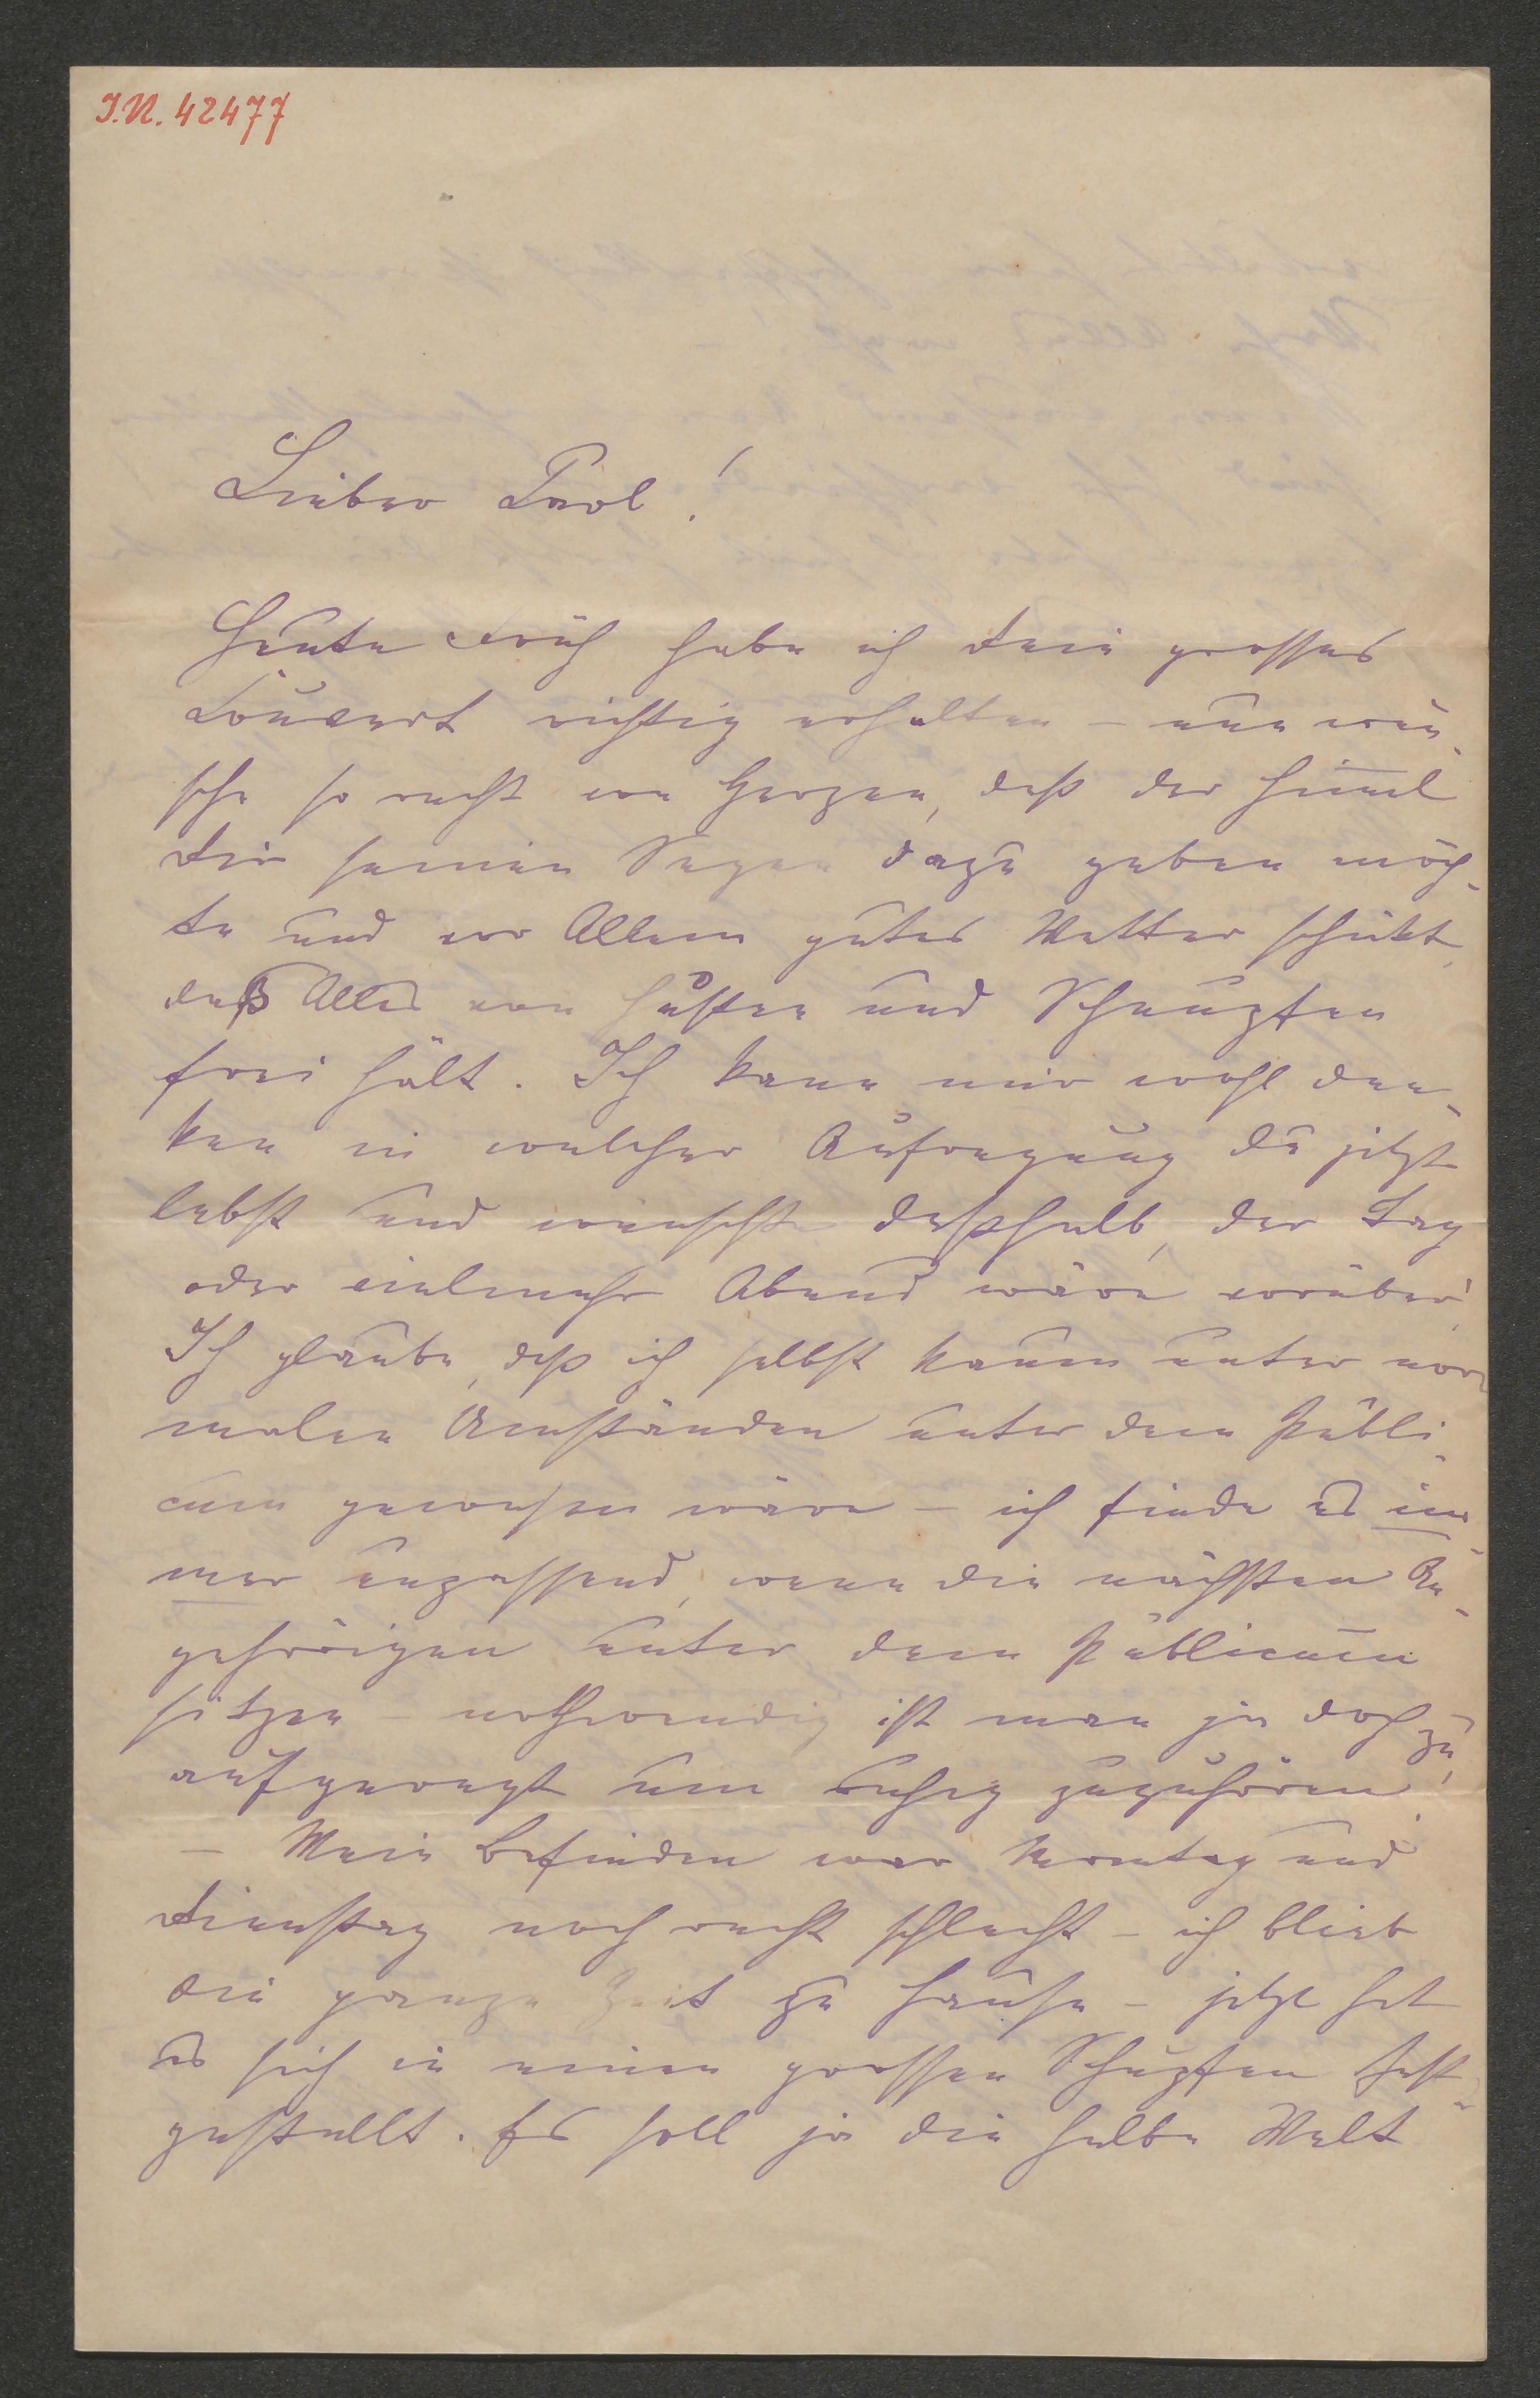 I.N. 42477
Lieber Carl!
Heute Früh habe ich Dein grosses
Couvert richtig erhalten – nun wün-
sche so recht von Herzen, daß der Him̅el
Dir seinen Segen dazu geben möch-
te und vor Allem gutes Wetter schickt,
daß Alles von Husten und Schnupfen
frei hält. Ich kann mir wohl den-
ken in welcher Aufregung du jetzt
lebst und wünschte deßhalb, der Tag
oder vielmehr Abend wäre vorüber!
Ich glaube, daß ich selbst kaum unter nor-
malen Umständen unter dem Publi-
cum gewesen wäre – ich finde es im-
mer unpassend, wenn die nächsten An-
gehörigen unter dem Publicum
sitzen – nothwendig ist man ja doch zu
aufgeregt um ruhig zuzuhören!
– Mein Befinden war Montag und
Dienstag noch recht schlecht – ich blieb
die ganze Zeit zu Hause – jetzt hat
es sich in einen grossen Schnupfen fest-
gestellt. Es soll ja die halbe Welt